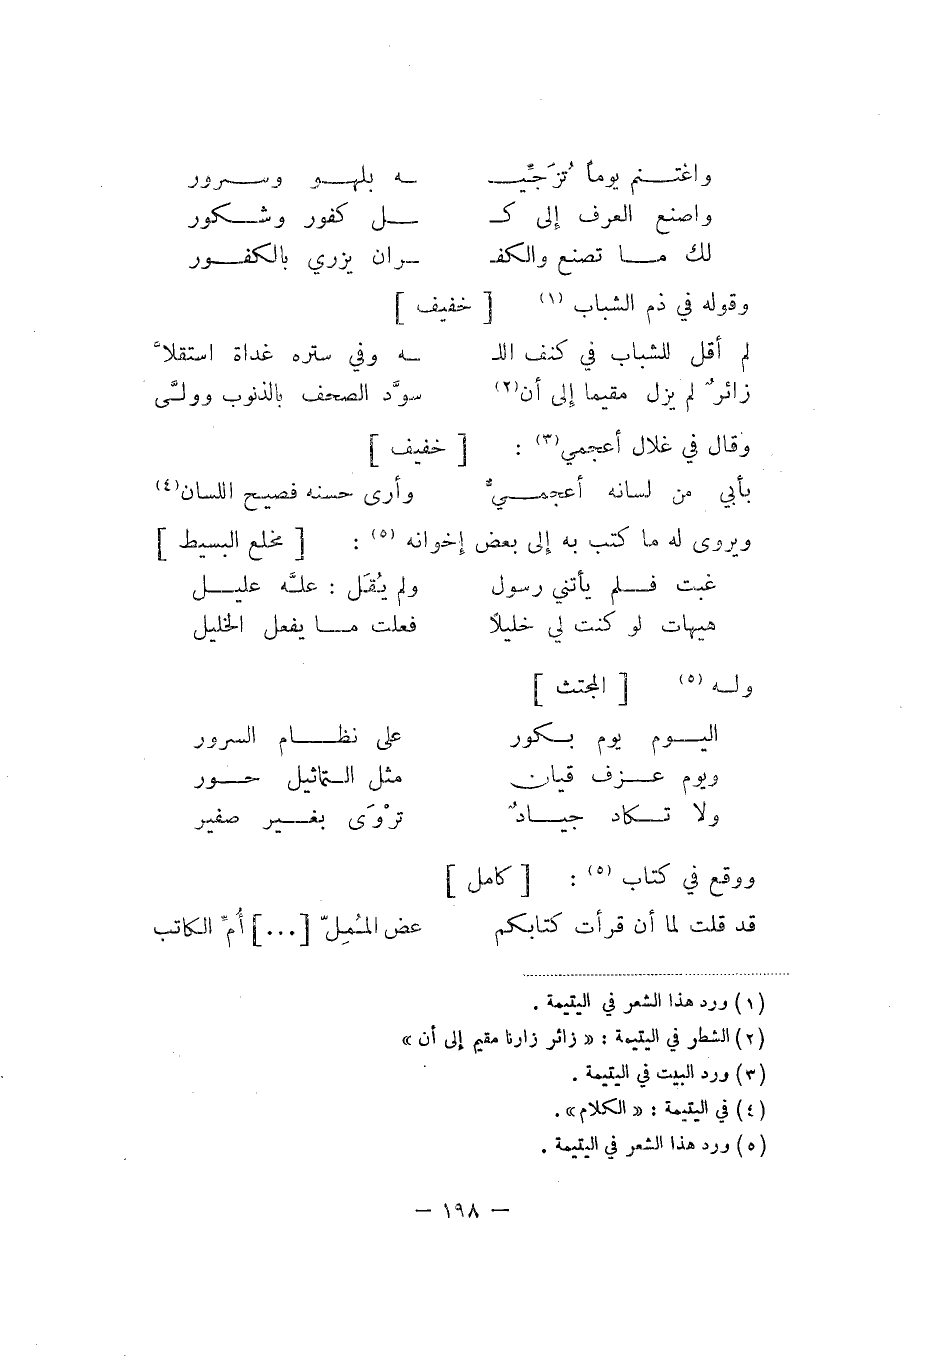 واغتـنم يوماً تُزَجّيـ ـه بلهـو وسـرور
واصنع العرف إلى كـ ـل كفور وشـكور
لك مـا تصنع والكفـ ـران يزري بالكفـور
وقوله في ذم الشباب (١) [ خفيف ]
لم أقل للشباب في كنف اللـ ـه وفي ستره غداة استقلاَّ
زائرٌ لم يزل مقيما إلى أن(٢) سوَّد الصحف بالذنوب وولَّى
وقال في غلال أعجمي(٣) : [ خفيف ]
بأبي من لسانه أعجمـيٌّ وأرى حسنه فصيح اللسان(٤)
ويروى له ما كتب به إلى بعض إخوانه (٥) : [ مخلع البسيط ]
غبت فـلم يأتني رسول ولم يُقَل : علَّه عليـل
هيهات لو كنت لي خليلاً فعلت مـا يفعل الخليل
ولـه (٥) [ المجتث ]
اليـوم يوم بـكور على نظـام السرور
ويوم عـزف قيان مثل الـتماثيل حـور
ولا تـكاد جيـادٌ تَرْوَى بغـير صفير
ووقع في كتاب (٥) : [ كامل ]
قد قلت لما أن قرأت كتابكم عض المُمِلّ [...] أُمّ الكاتب
(١) ورد هذا الشعر في اليتيمة .
(٢) الشطر في اليتيمة : « زائر زارنا مقيم إلى أن »
(٣) ورد البيت في اليتيمة .
(٤) في اليتيمة : « الكلام» .
(٥) ورد هذا الشعر في اليتيمة .
— ١٩٨ —